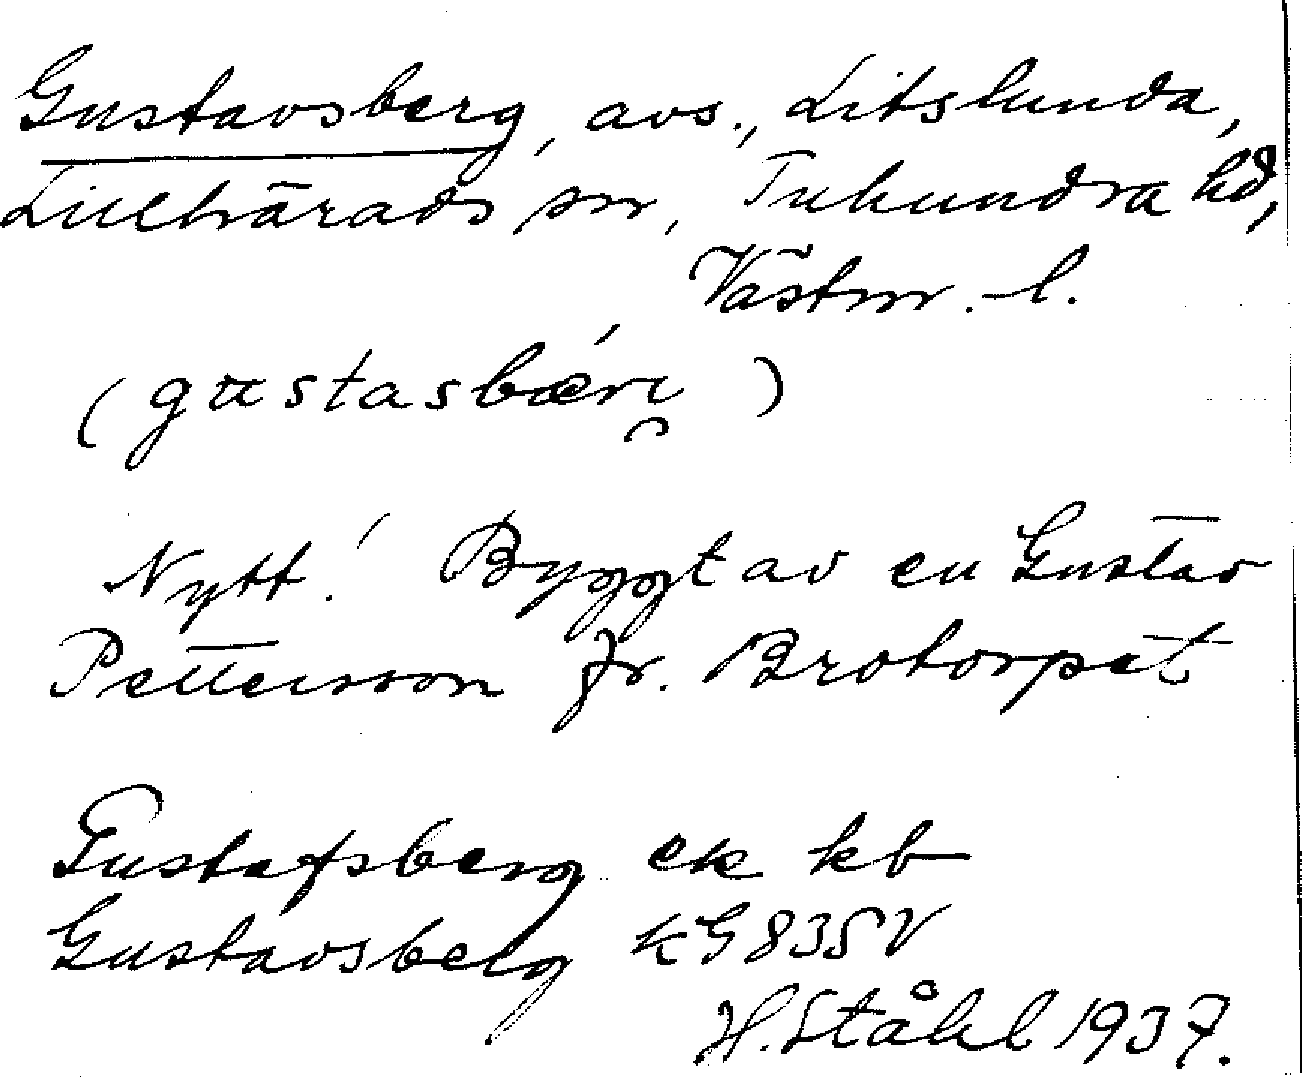 Gustavsberg, avs., Litslunda,
Lillhärads sn, Tuhundra hd,
Västm. l.
(gustasbærj)
Nytt! Byggt av en Gustav
Pettersson fr. Brotorpet
Gustafsberg ek kb
Gustavsberg kG 83SV
H. Ståhl 1937.